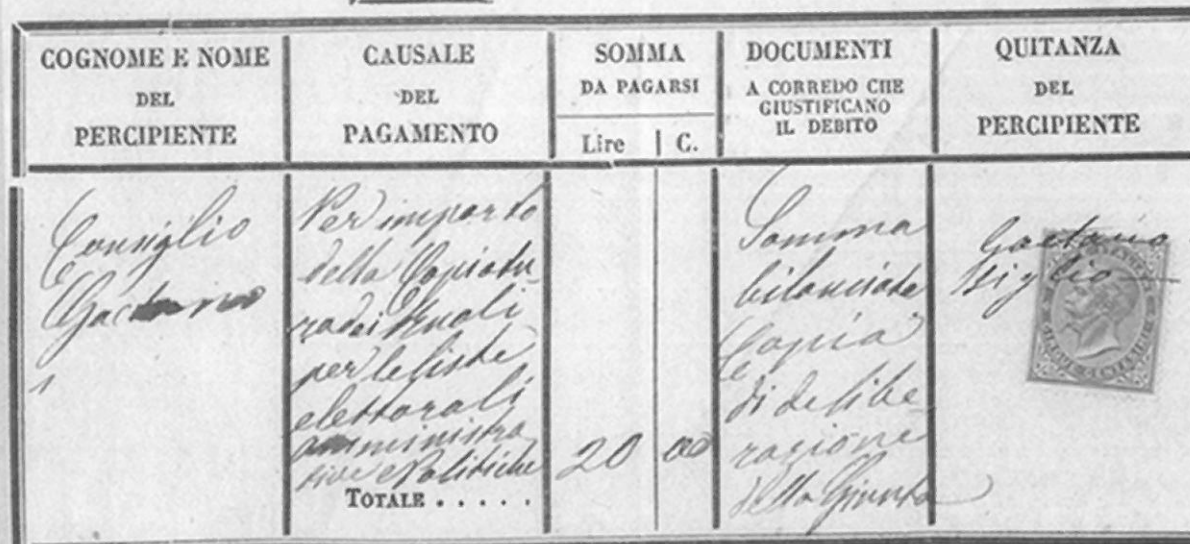 COGNOME E NOME
DEL
PERCIPIENTE
CAUSALE
DEL
PAGAMENTO
SOMMA
DA PAGARSI
Lire
C.
DOCUMENTI
A CORREDO CHE
GIUSTIFICANO
IL DEBITO
QUITANZA
DEL
PERCIPIENTE
Consiglio
Gaetano
Per importo
della Copiatu-
ra dei Ruoli
per le liste
elettorali
amministra
tive e Politiche
20
00
Somma
bilanciata
Copia
di delibe-
razione
della Giunta
Gaetano
TOTALE . . . . .